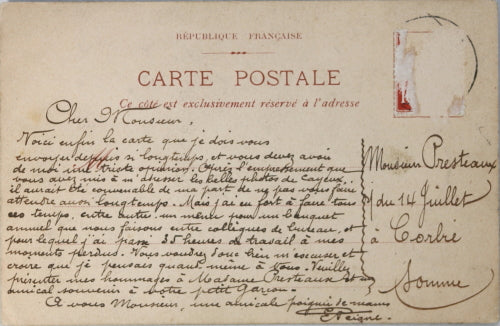 RÉPUBLIQUE FRANÇAISE
CARTE POSTALE
Ce côté est exclusivement réservé à l'adresse
Cher Monsieur,
Voici enfin la carte que je dois vous
envoyer depuis si longtemps, et vous devez avoir
de moi une triste opinion. Après l'empressement que
vous avez mis à m'adresser les belles photos de Cayeux,
il aurait été convenable de ma part de ne pas vous faire
attendre aussi longtemps. Mais j'ai eu fort à faire tous
ces temps, entre autre un menu pour un banquet
annuel que nous faisons entre collègues de bureau, et
pour lequel j'ai passé 35 heures de travail à mes
moments perdus. Vous voudrez donc bien m'excuser et
croire que je pensais quand même à vous. Veuillez
présenter mes hommages à Madame Presteaux et un
amical souvenir à votre petit garçon.
A vous Monsieur, une amicale poignée de mains
Monsieur Presteaux
du 14 Juillet
à Corbie
Somme